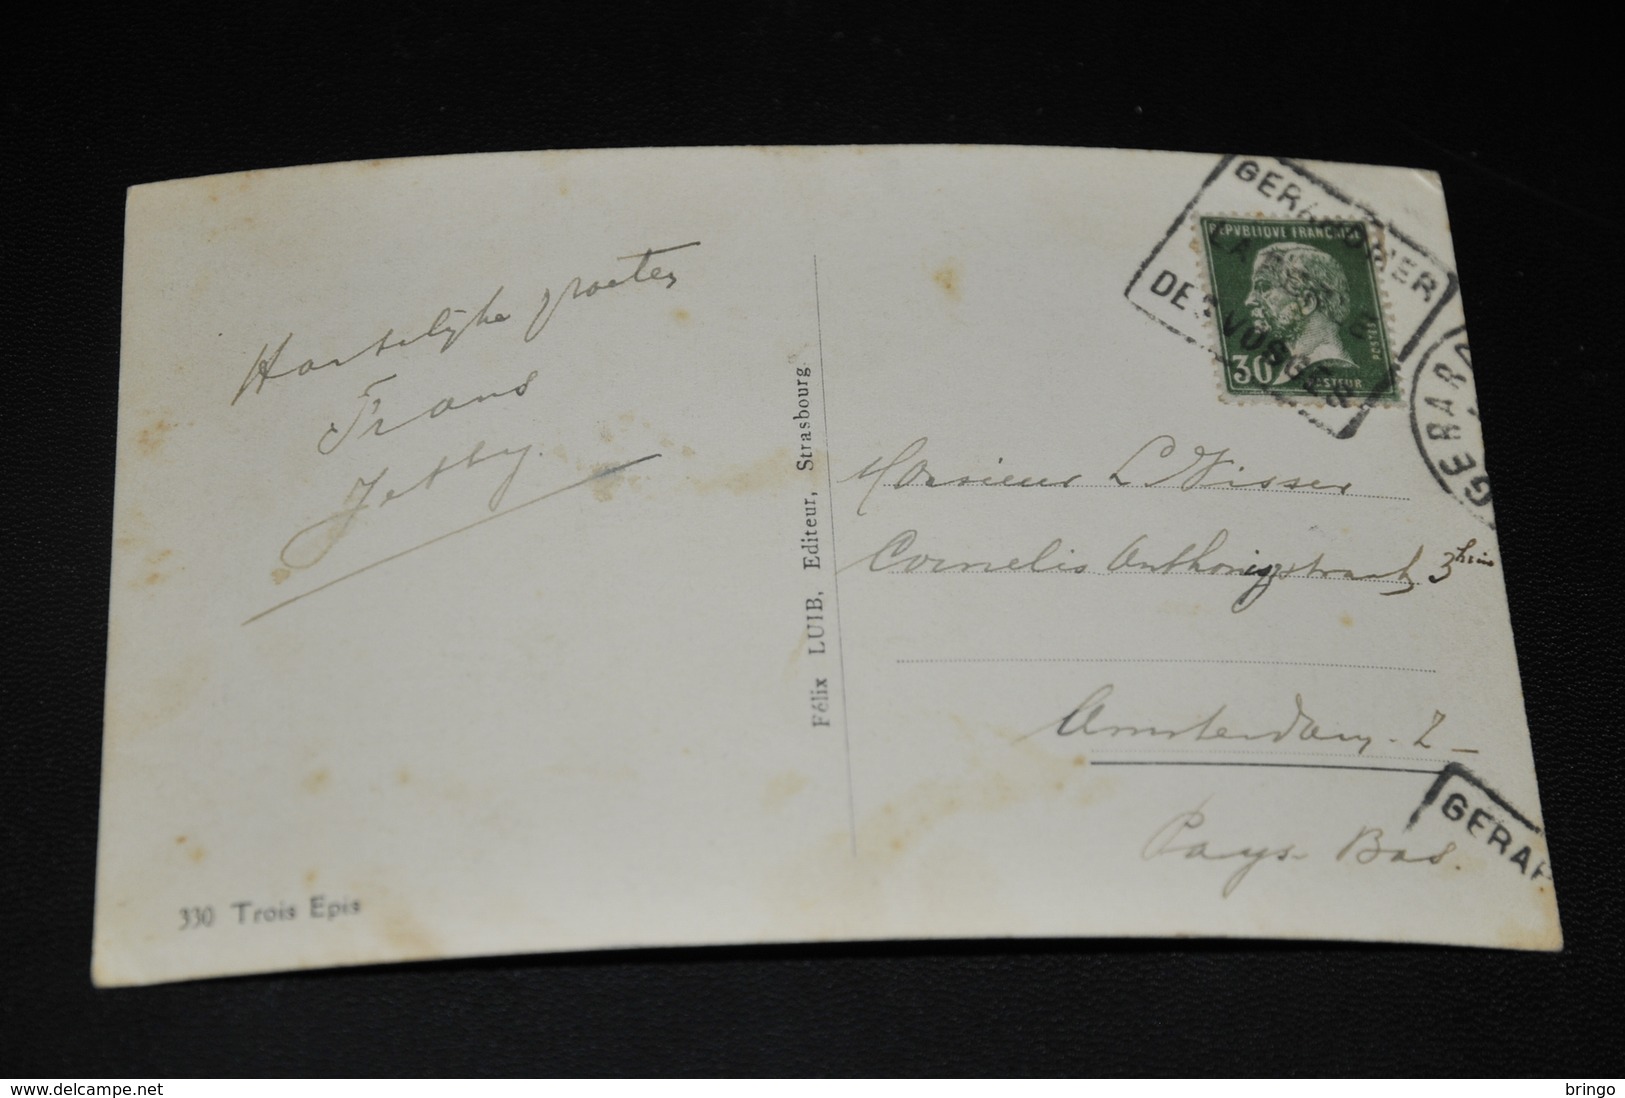 Hartelijke groeten
Frans
Jetty.
330 Trois Epis
Félix LUIB, Editeur, Strasbourg.
GERARDMER
LA PERLE
DES VOSGES
REPVBLIQUE FRANCAISE
POSTES
30
PASTEUR
GERARD
Monsieur L Visser
Cornelis Anthoniszstraat 3
Amsterdam. Z
Pays-Bas.
GERAR
delcampe.net
bringo